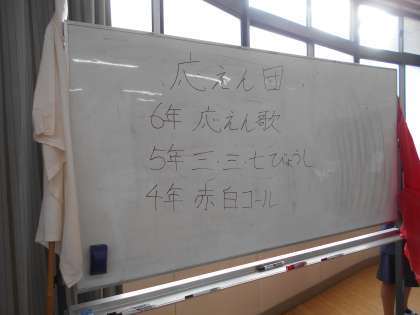 応えん団
6年 応えん歌
5年 三・三・七びょうし
4年 赤白コール